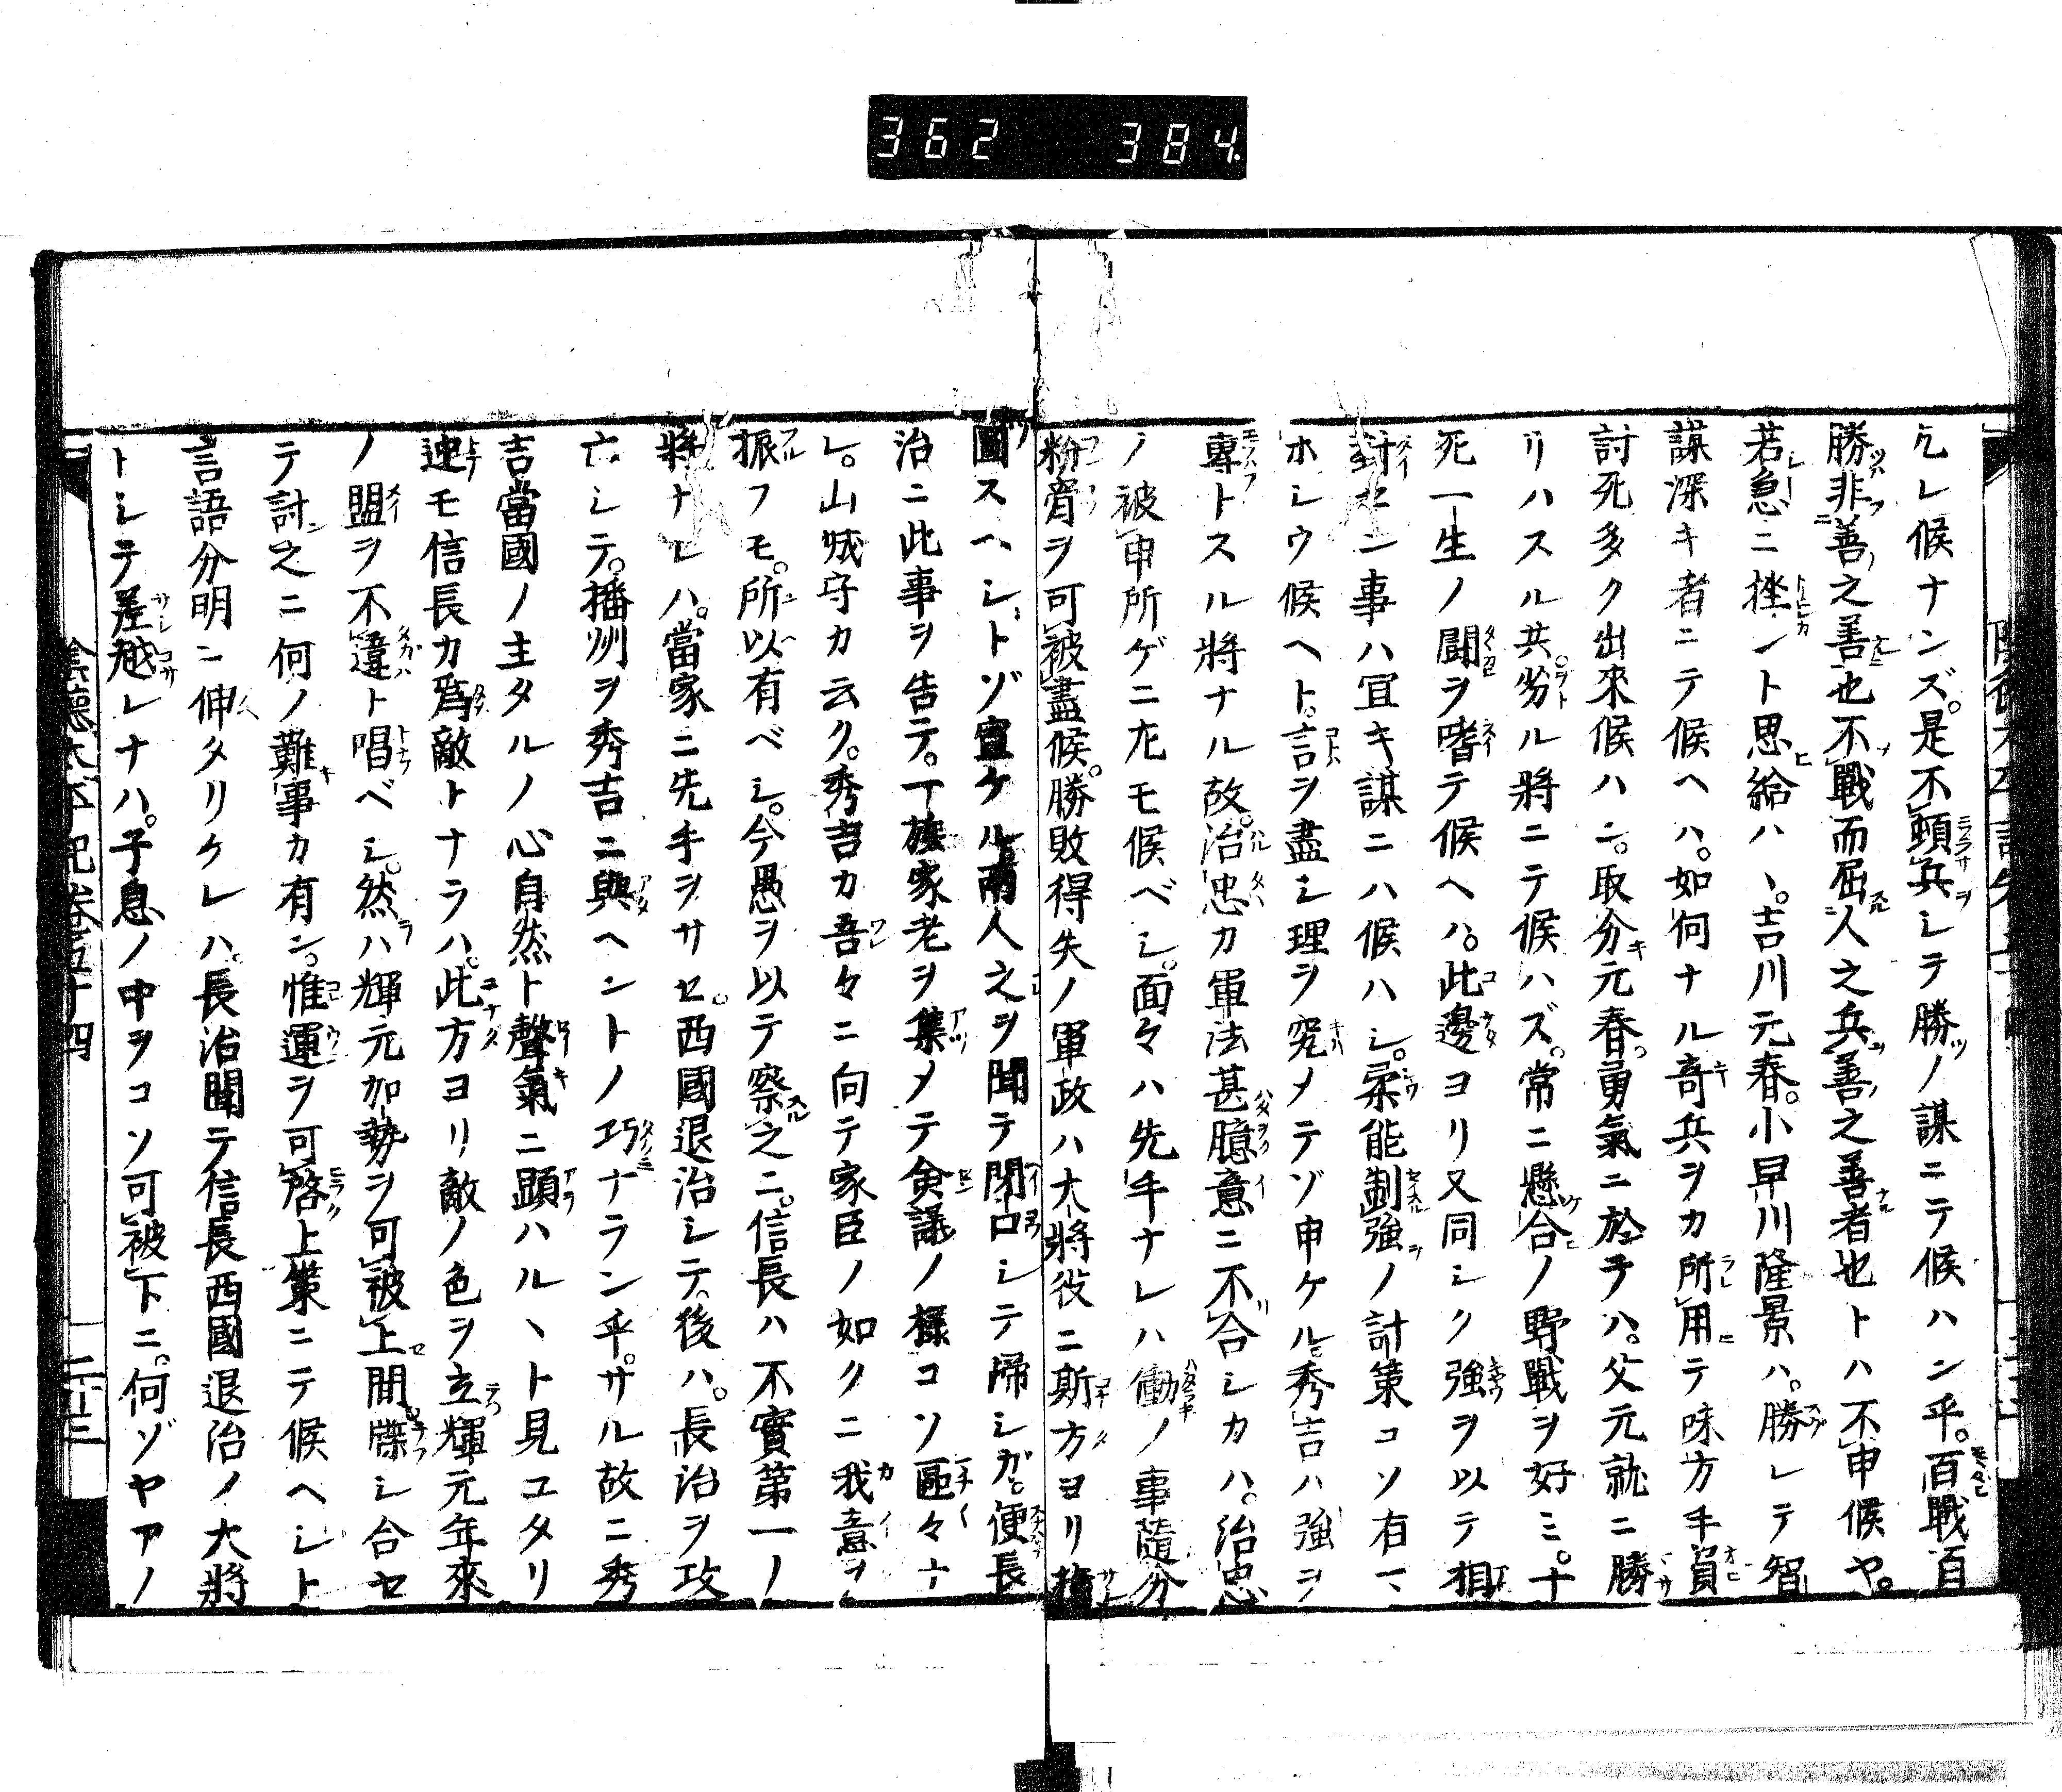 362 384.
候ナンズ。是不頓兵シテ勝ツノ謀ニテ候ハン乎。百戰百
勝非善之善也不戰而屈人之兵善之善者也トハ不申候ヤ。
若急ニ挫ント思給ハヽ。吉川元春。小早川隆景ハ。勝レテ智
謀深キ者ニテ候ヘハ。如何ナル奇兵ヲカ所用テ味方手負
討死多ク出來候ハン。取分元春。勇氣ニ於テハ。父元就ニ勝
リハスル共劣ル將ニテ候ハズ。常ニ懸合ノ野戰ヲ好ミ。十
死一生ノ鬪ヲ嗜テ候ヘハ。此邊ヨリ又同シク強ヲ以テ相
討セン事ハ冝キ謀ニハ候ハシ。柔能制強ノ計策コソ有
ホシウ候ヘト。言ヲ盡シ理ヲ究メテゾ申ケル。秀吉ハ強ヲ
專トスル將ナル故。治忠カ軍法甚臆意ニ不合シカハ。治忠
ノ被申所ゲニ尤モ候ベシ。面々ハ先手ナレハ働ノ事隨分
粉骨ヲ可被盡候。勝敗得失ノ軍政ハ大將役ニ斯方ヨリ
圖スヘシ、トゾ宣ケル兩人之ヲ聞テ閉口シテ歸シガ。便長
治ニ此事ヲ告テ。一族家老ヲ集メテ僉議ノ樣コソ區々ナ
レ。山城守カ云ク。秀吉カ吾々ニ向テ家臣ノ如クニ我意ヲ
振フモ。所以有ベシ。今愚ヲ以テ察之ニ。信長ハ不實第一ノ
將ナレハ。當家ニ先手ヲサセ。西國退治シテ。後ハ。長治ヲ攻
亡シテ。播州ヲ秀吉ニ與ヘントノ巧ナラン乎。サル故ニ秀
吉當國ノ主タルノ心自然ト聲氣ニ顕ハルヽト見ユタリ
速モ信長カ爲敵トナラハ。此方ヨリ敵ノ色ヲ立輝元年來
ノ盟ヲ不違ト唱ベシ。然ハ輝元加勢ヲ可被上間。牒シ合セ
テ討之ニ何ノ難事カ有ン。惟運ヲ可啓上策ニテ候ヘシト
言語分明ニ伸タリケレハ。長治聞テ信長西國退治ノ大將
トシテ差越レナハ。子息ノ中ヲコソ可被下ニ。何ゾヤアノ
陰德太平記卷五十四 二十三